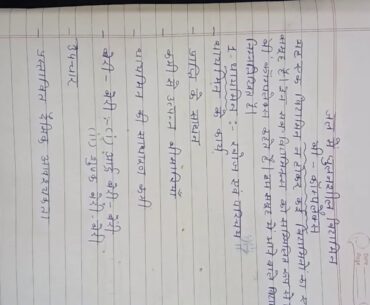 जल में घुलनशील विटामिन
बी - कॉम्पलेक्स
यह एक विटामिन न होकर कई विटामिनों का
समूह है। इन सब विटामिन को सम्मिलित रूप से
बी कॉम्पलेक्स कहते हैं। इस समूह में आने वाले
निम्नलिखित हैं।
1. थायमिन :- खोज एवं परिचय
- थायमिन के कार्य
- प्राप्ति के साधन
- कमी से उत्पन्न बीमारियाँ
- थायमिन की साधारण कमी
- बेरी - बेरी :- (i) आर्द्र बेरी - बेरी
(ii) शुष्क बेरी - बेरी
- उपचार
- प्रस्तावित दैनिक आवश्यकता